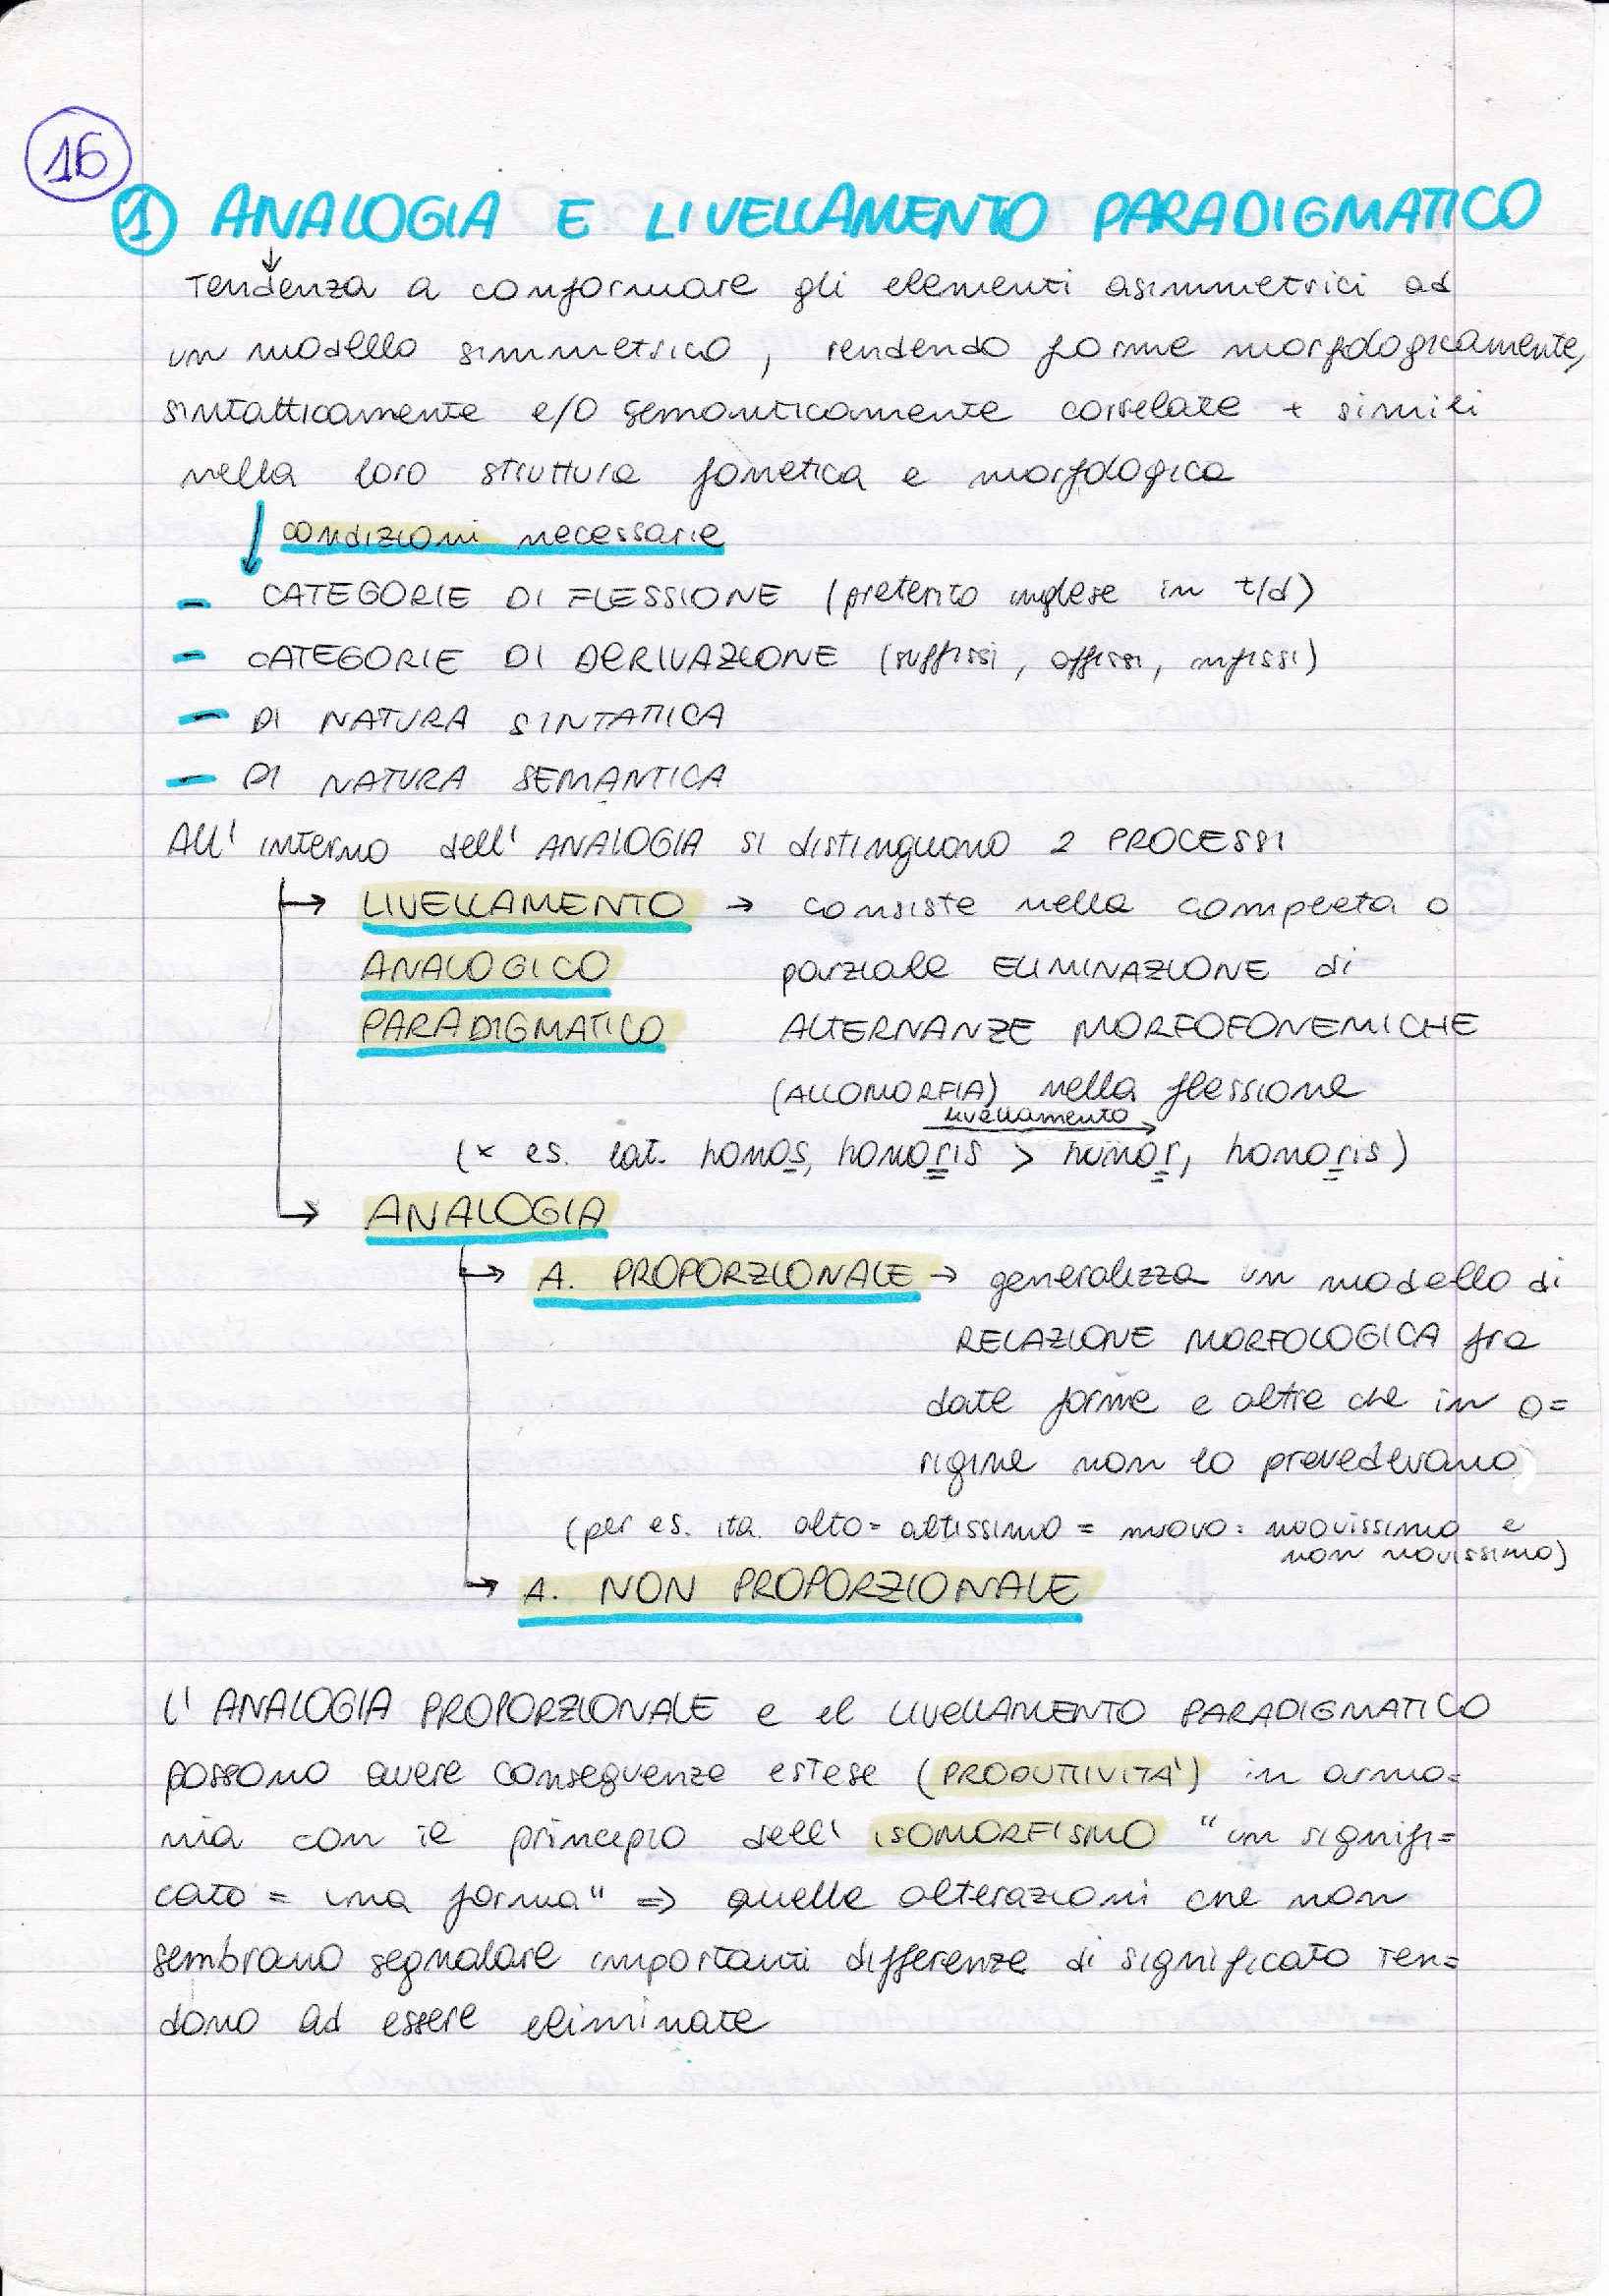 16
① ANALOGIA E LIVELLAMENTO PARADIGMATICO
↓
Tendenza a conformare gli elementi asimmetrici ad
un modello simmetrico, rendendo forme morfologicamente,
sintatticamente e/o semanticamente correlate + simili
nella loro struttura fonetica e morfologica
↓ condizioni necessarie
- CATEGORIE DI FLESSIONE (preterito inglese in t/d)
- CATEGORIE DI DERIVAZIONE (suffissi, affissi, infissi)
- DI NATURA SINTATTICA
- DI NATURA SEMANTICA
All' interno dell' ANALOGIA si distinguono 2 PROCESSI
→ LIVELLAMENTO → consiste nella completa o
ANALOGICO parziale ELIMINAZIONE di
PARADIGMATICO ALTERNANZE MORFOFONEMICHE
(ALLOMORFIA) nella flessione
livellamento
(x es. lat. honos, honoris > honor, honoris)
→ ANALOGIA
→ A. PROPORZIONALE → generalizza un modello di
RELAZIONE MORFOLOGICA fra
date forme e altre che in o=
rigine non lo prevedevano
(per es. ita. alto = altissimo = nuovo : nuovissimo e
non novissimo)
→ A. NON PROPORZIONALE
L' ANALOGIA PROPORZIONALE e il LIVELLAMENTO PARADIGMATICO
possono avere conseguenze estese (PRODUTTIVITA') in armo=
nia con il principio dell' ISOMORFISMO "un signifi=
cato = una forma" => quelle alterazioni che non
sembrano segnalare importanti differenze di significato ten=
dono ad essere eliminate